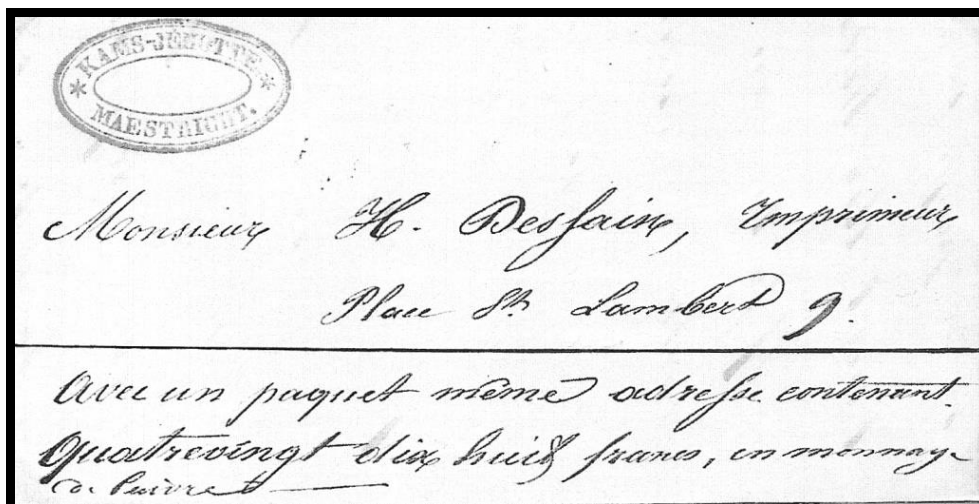 * KAMS-JEHOTTE *
MAESTRICHT.
Monsieur H. Dessain, Imprimeur
Place St. Lambert 9.
Avec un paquet même adresse contenant
Quatrevingt dix huit francs, en monnaye
de Cuivre